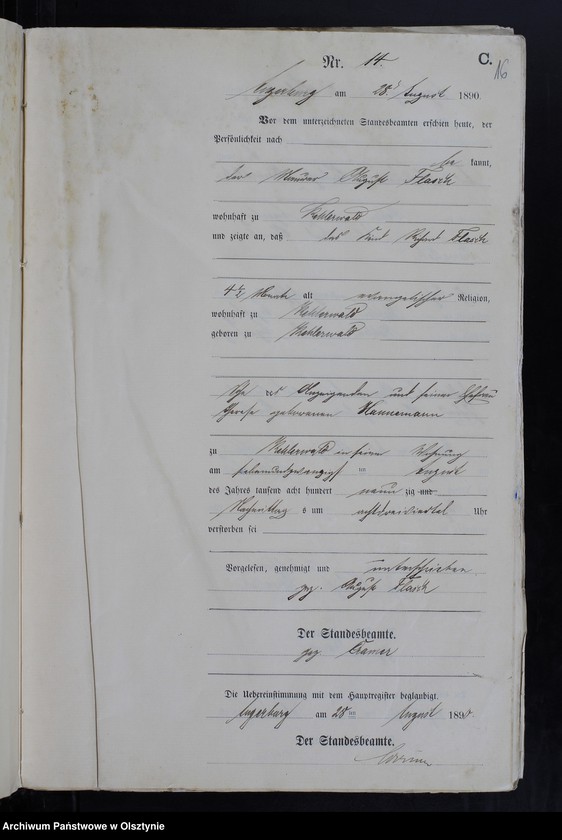 C.
16
Nr. 14.
Angerburg am 28. August 1890.
Vor dem unterzeichneten Standesbeamten erschien heute, der
Persönlichkeit nach
be kannt,
der Maurer August Flasch
wohnhaft zu Kehlerwald
und zeigte an, daß das Kind Richard Flasch
4½ Monate alt evangelischer Religion,
wohnhaft zu Kehlerwald
geboren zu Kehlerwald
Sohn des Anzeigenden und seiner Ehefrau
geborenen Hannemann
zu Kehlerwald in seiner Wohnung
am siebenundzwanzigsten August
des Jahres tausend acht hundert neunzig und
Nachmittag s um achtdreiviertel Uhr
verstorben sei
Vorgelesen, genehmigt und unterschrieben
gez. August Flasch
Der Standesbeamte.
gez. Cramer
Die Uebereinstimmung mit dem Hauptregister beglaubigt.
Angerburg am 28ten August 1890
Der Standesbeamte.
Archiwum Państwowe w Olsztynie